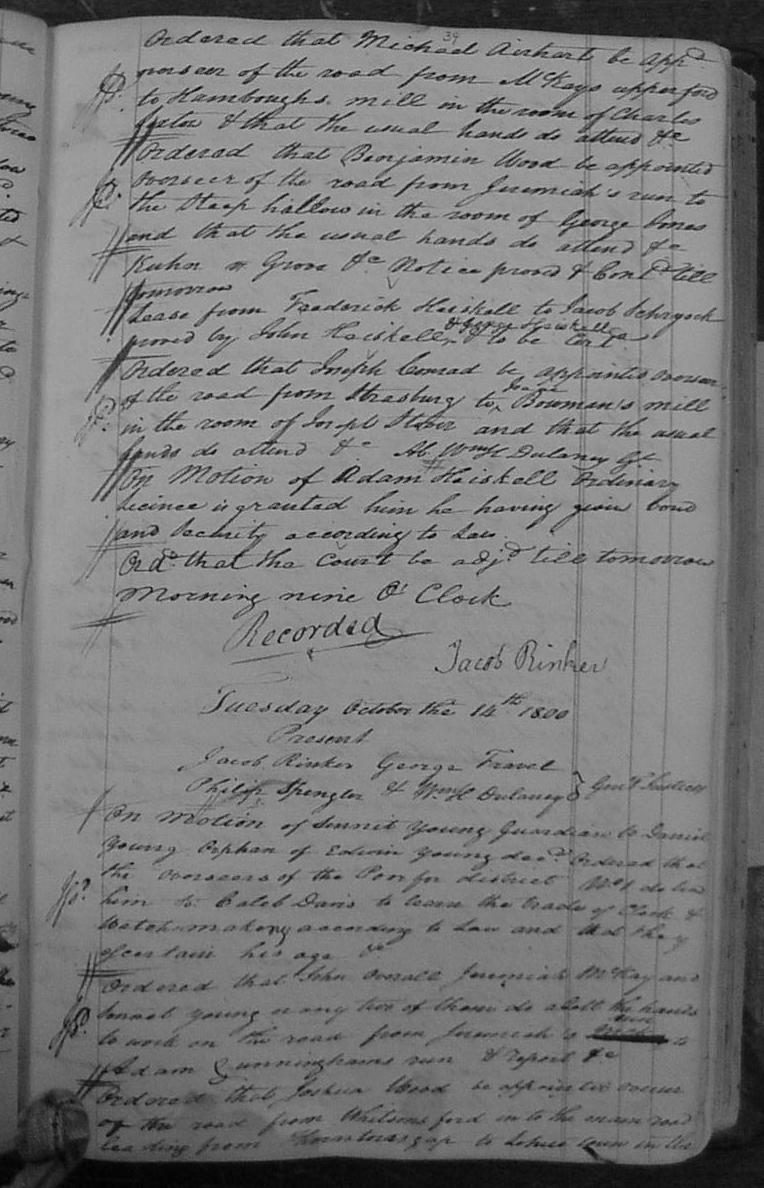 39
Ordered that Michael Airhart be app.d
overseer of the road from McKays upper ford
to Hamboughs mill in the room of Charles
& that the usual hands do attend &c
Ordered that Benjamin Wood be appointed
Overseer of the road from Jeremiah's run to
the Steep hallow in the room of George
and that the usual hands do attend &c
Kuhn vs Grove &c Notice proved & Con.d till
tomorrow
Lease from Frederick Heiskell to Jacob Schryock
proved by John Heiskell & George Heiskell & to be Cert.d
Ordered that Joseph Conrad be appointed overseer
of the road from Strasburg to Bowman's mill
in the room of Joseph Stover and that the usual
hands do attend &c Ab. Wm H Dulaney Gt
On Motion of Adam Heiskell Ordinary
licince is granted him he having given bond
and Security according to Law
Ord.d that the Court be adj.d till tomorrow
Morning nine O' Clock
Recorded
Jacob Rinker
Tuesday October the 14th 1800
Present
Jacob Rinker George Fravel
Philip Spengler & Wm H Dulaney } Gent Justices
On Motion of Sennit Young Guardian to Daniel
Young Orphan of Edwin Young dec.d Ordered that
the Overseers of the Poor for district No 1 do
him to Caleb Davis to learn the trade of Clock &
Watch-making according to Law and that they
ascertain his age &c
Ordered that John Overall Jeremiah McKay and
Sennet Young or any two of them do allot the hands
to work on the road from Jeremiah's run to
Adam Cunninghams run & report &c
Ordered that Joshua Wood be appointed overseer
of the road from Whitsons ford in to the main road
leading from Thorntons gap to town in the